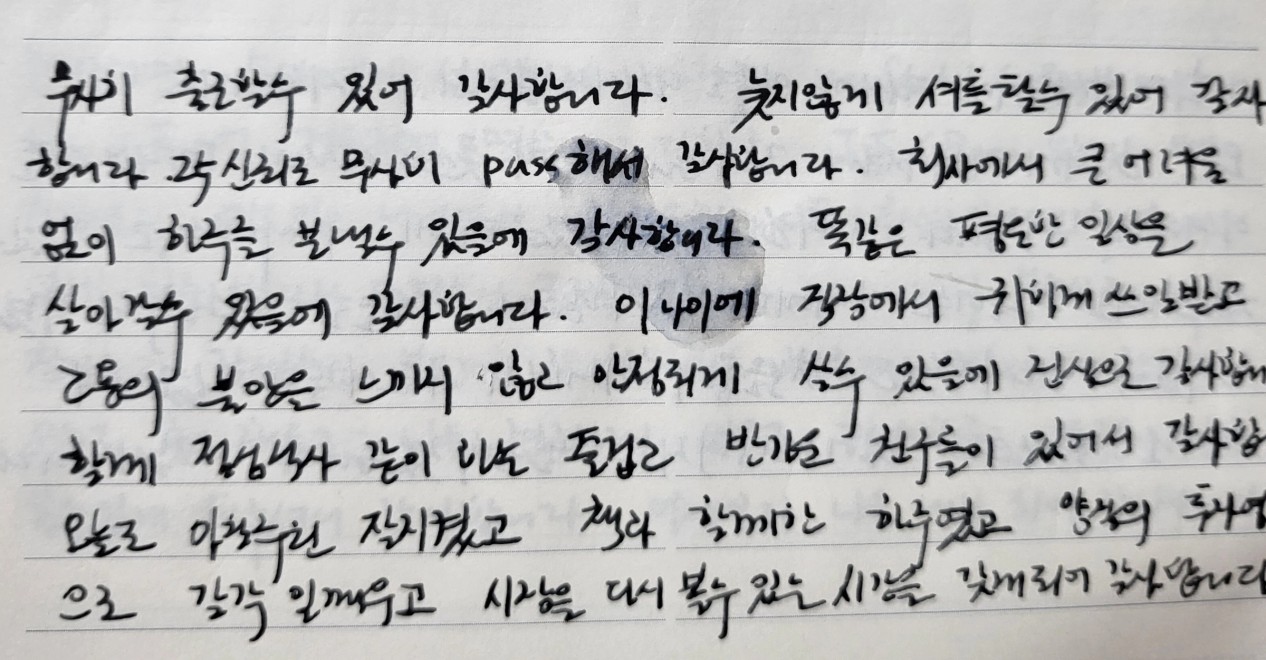 무사히 출근할수 있어 감사합니다. 늦지않게 셔틀탈수 있어 감사
합니다 각 신뢰로 무사히 pass해서 감사합니다. 회사에서 큰 어려움
없이 하루를 보낼수 있음에 감사합니다. 똑같은 평온한 일상을
살아갈수 있음에 감사합니다. 이 나이에 직장에서 귀하게 쓰임받고
고용의 불안은 느끼지 않고 안정되게 쓸수 있음에 진심으로 감사합니
함께 점심식사 같이 하는 즐겁고 반가운 친구들이 있어서 감사합
오늘도 야학수련 잘지켰고 책과 함께한 하루였고 양생의 투자연
으로 감각 일깨우고 시장을 다시 볼수 있는 시간을 갖게되어 감사합니다